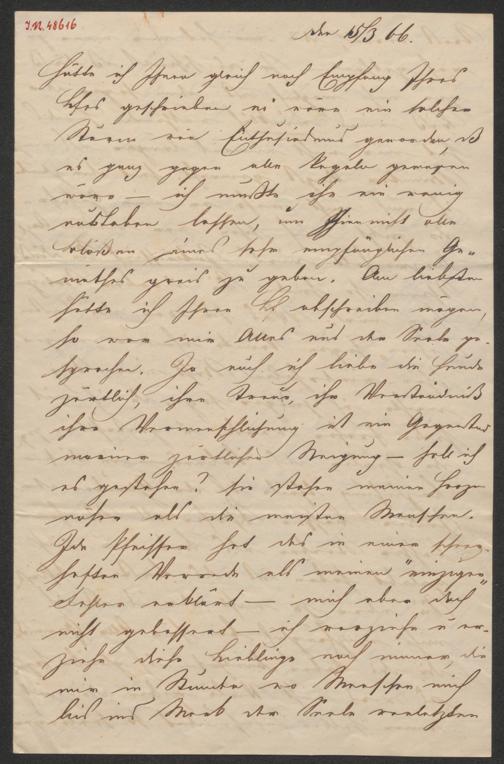 J.N. 48616
den 15/3 66.
Hätte ich Ihnen gleich nach Empfang Ihres
Bfes geschrieben es wäre ein solcher
Sturm von Enthusiasmus geworden daß
es ganz gegen alle Regeln gewesen
wäre — ich mußte ihn ein wenig
austoben lassen, um Ihnen nicht alle
Blößen eines sehr empfänglichen Ge„
müthes preis zu geben. Am liebsten
hätte ich Ihren Bf abschreiben mögen,
so war mir Alles aus der Seele ge„
sprochen. Ja auch ich liebe die Hunde
zärtlich, ihre Treue, ihr Verständniß
ihre Vermenschlichung ist ein Gegenstand
meiner zärtlichen Neigung — soll ich
es gestehen? sie stehen meinem Herzen
näher als die meisten Menschen.
Ida Pfeiffer hat das in einer scherz„
haften Vorrede als meinen "einzigen"
Fehler erklärt — mich aber doch
nicht gebessert — ich verziehe u er„
ziehe diese Lieblinge noch immer, die
mir in Stunden wo Menschen mich
bis ins Mark der Seele verletzten